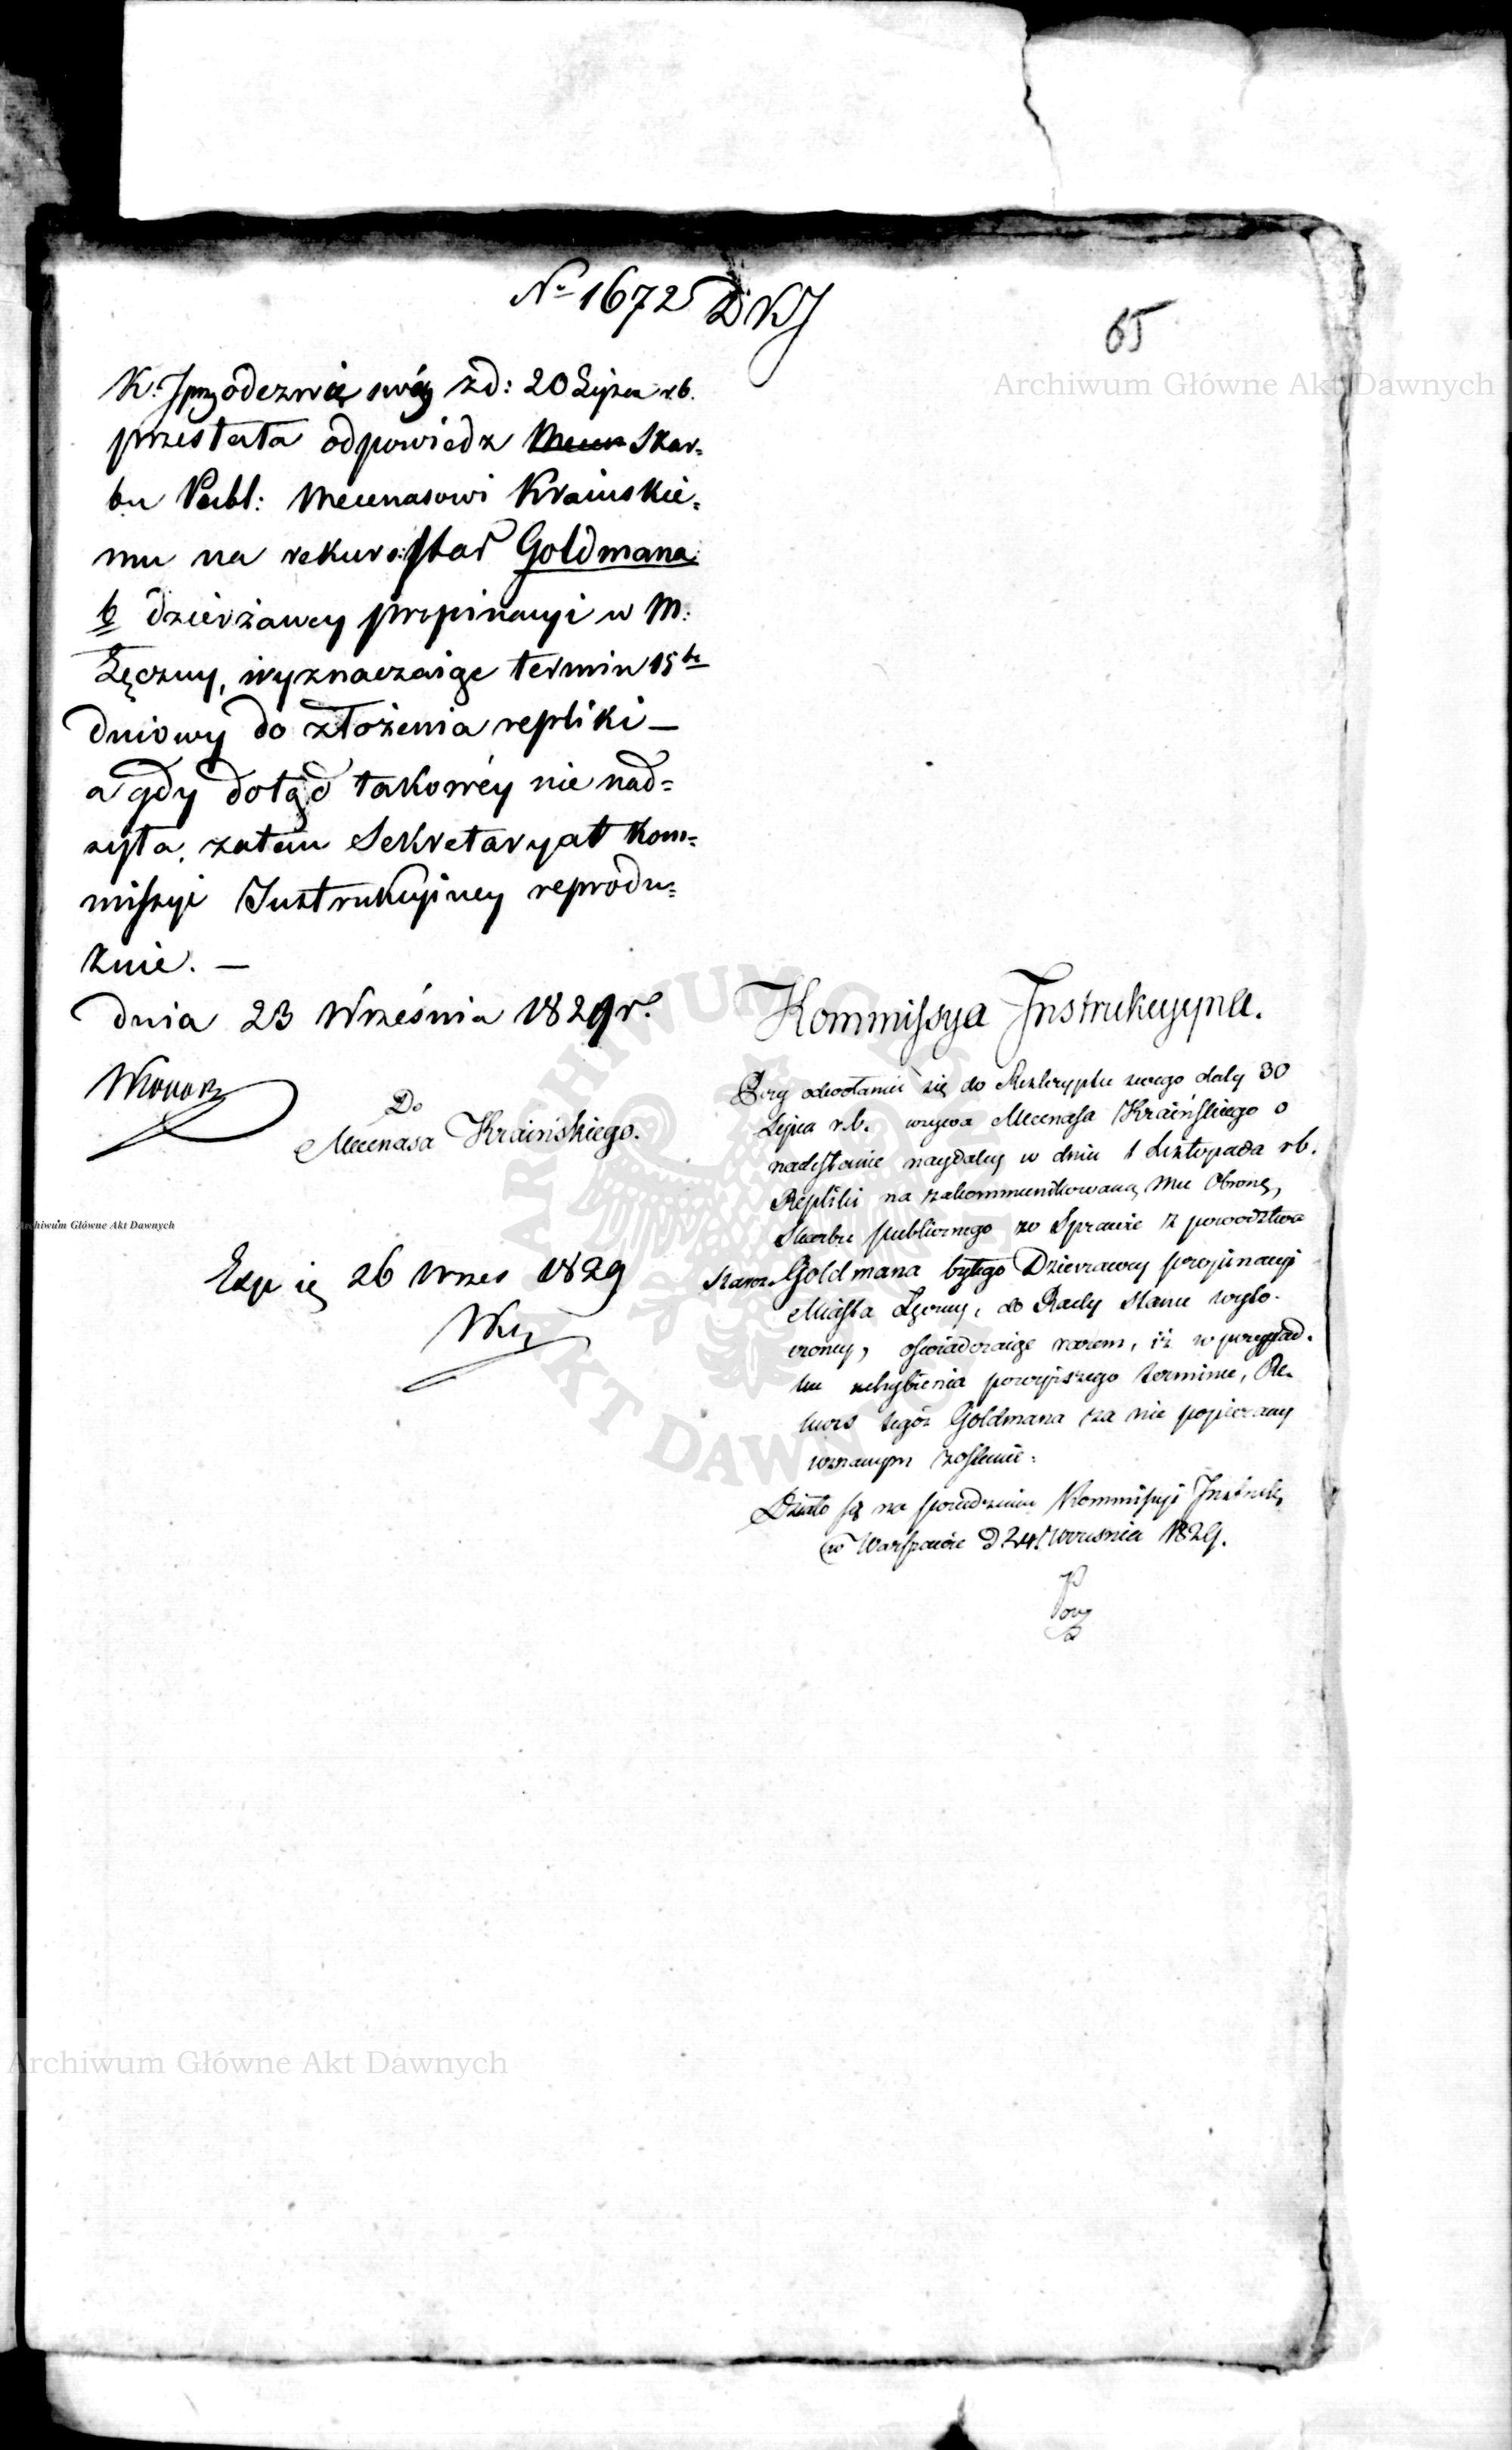 No 1672 D K J
65
K. J. przy odezwie swéy z d: 20 Lipca r.b.
przesłała odpowiedz Skar=
bu Publ: Mecenasowi Kraińskie=
mu na rekurs Goldmana
b dzierżawcy propinacyi w M:
Łęczny, wyznaczaiąc termin 15to
dniowy do złożenia repliki —
a gdy dotąd takowéy nie nad=
syła, zatem Sekretaryat Kom=
missyi Instrukcyiney reprodu=
kuie. —
dnia 23 Września 1829 r.
Do
Mecenasa Kraińskiego.
Exp ię 26 Wrzes 1829
Kommissya Instrukcyyna.
Przy odwołaniu się do Reskryptu swego daty 30
Lipca r.b. wzywa Mecenasa Kraińskiego o
nadesłanie naydaley w dniu 1 Listopada rb.
Repliki na zakommunikowaną Mu Obronę,
Skarbu publicznego w Sprawie z powodztwa
Goldmana byłego Dzierzawcy propinacyi
Miasta Łęczny, do Rady Stanu wyto-
czoney, oświadczaiąc razem, iż w przypad-
ku uchybienia powyższego terminu, Re-
kurs tegóż Goldmana za nie popierany
uznanym zostanie.
Działo się na posiedzeniu Kommissyi Instruk:
w Warszawie d 24 Wrzesnia 1829.
Archiwum Główne Akt Dawnych
Archiwum Główne Akt Dawnych
Archiwum Główne Akt Dawnych
ARCHIWUM GŁÓWNE AKT DAWNYCH